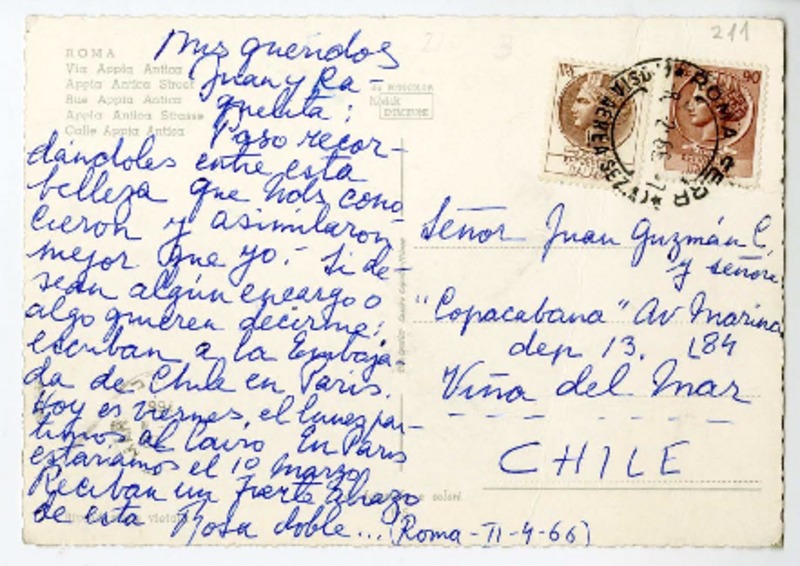 211
ROMA
Via Appia Antica
Appia Antica Street
Rue Appia Antica
Appia Antica Strasse
Calle Appia Antica
Mis queridos
Juan y Ra-
quelita:
Paso recor-
dándoles entre esta
belleza que Uds. cono
cieron y asimilaron
mejor que yo.- Si de-
sean algún encargo o
algo quieren decirme,
escriban a la Embaja
da de Chile en París.
Hoy es viernes, el lunes par-
timos al Cairo En París
estaríamos el 10 marzo
Reciban un fuerte abrazo
de esta Rosa doble... (Roma-II-4-66)
90
ROMA
Señor Juan Guzmán C.
y señora
"Copacabana" Av Marina
dep 13. 184
Viña del Mar
CHILE